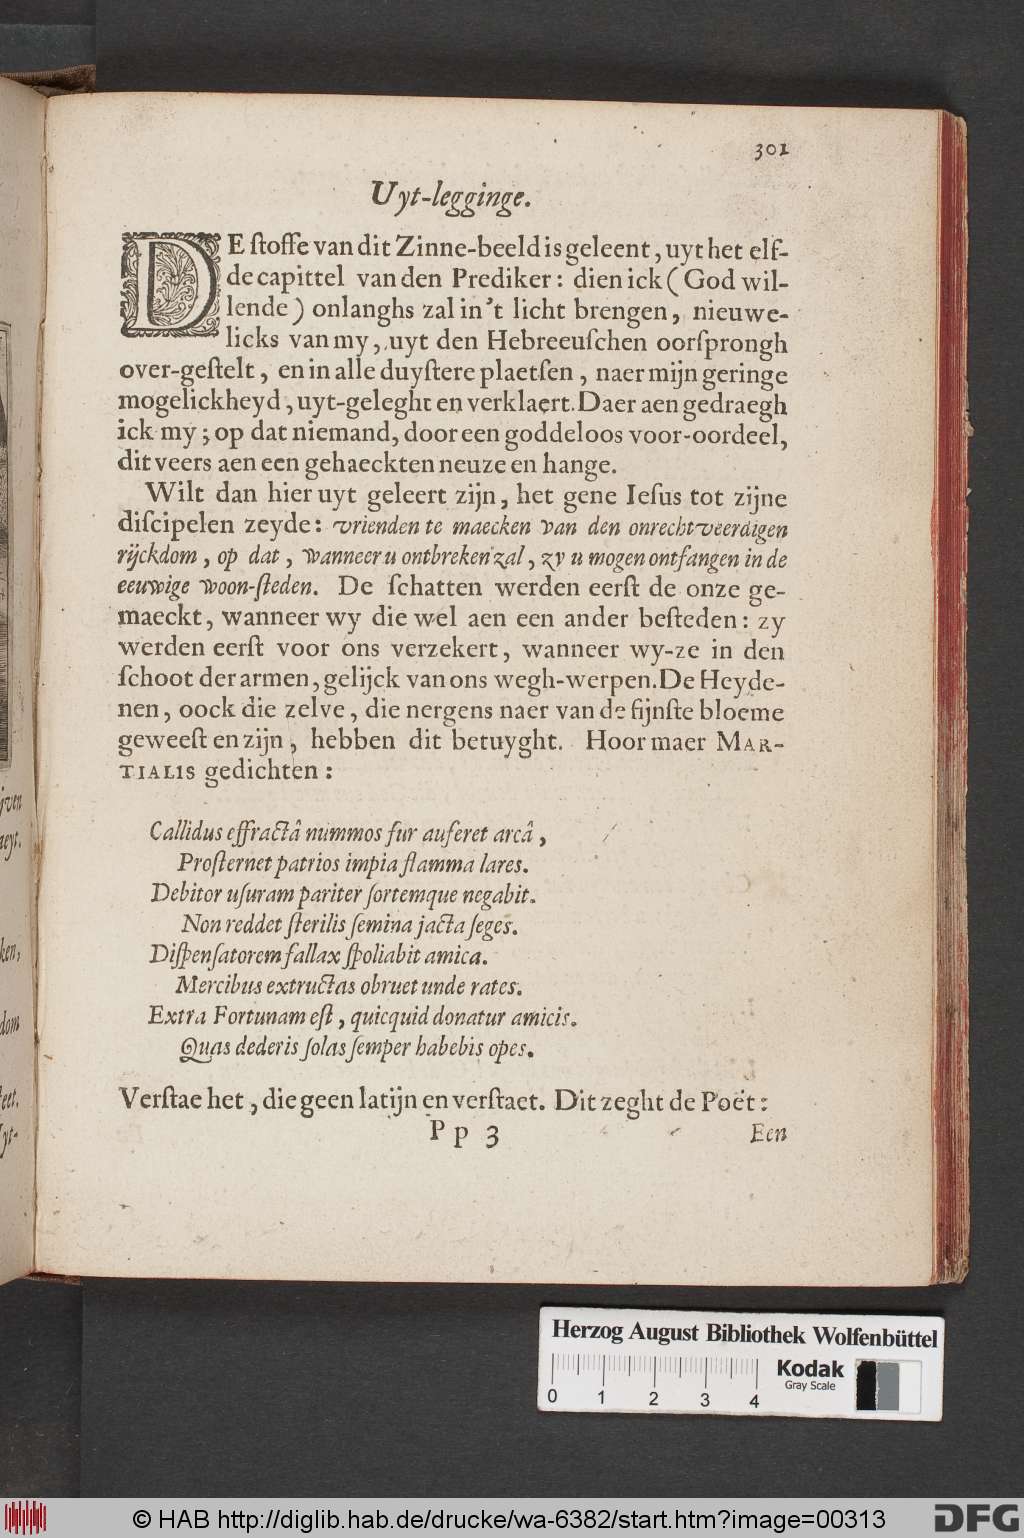 301
Uyt-legginge.
DE ſtoffe van dit Zinne-beeld is geleent, uyt het elf-
de capittel van den Prediker: dien ick (God wil-
lende) onlanghs zal in't licht brengen, nieuwe-
licks van my, uyt den Hebreeuſchen oorſprongh
over-geſtelt, en in alle duyſtere plaetſen, naer mijn geringe
mogelickheyd, uyt-geleght en verklaert. Daer aen gedraegh
ick my; op dat niemand, door een goddeloos voor-oordeel,
dit veers aen een gehaeckten neuze en hange.
Wilt dan hier uyt geleert zijn, het gene Ieſus tot zijne
diſcipelen zeyde: vrienden te maecken van den onrechtveerdigen
rijckdom, op dat, wanneer u ontbreken zal, zy u mogen ontfangen in de
eeuwige woon-ſteden. De ſchatten werden eerſt de onze ge-
maeckt, wanneer wy die wel aen een ander beſteden: zy
werden eerſt voor ons verzekert, wanneer wy-ze in den
ſchoot der armen, gelijck van ons wegh-werpen. De Heyde-
nen, oock die zelve, die nergens naer van de fijnſte bloeme
geweeſt en zijn, hebben dit betuyght. Hoor maer MAR-
TIALIS gedichten:
Callidus effractâ nummos fur auferet arcâ,
Proſternet patrios impia flamma lares.
Debitor uſuram pariter ſortemque negabit.
Non reddet ſterilis ſemina jacta ſeges.
Diſpenſatorem fallax ſpoliabit amica.
Mercibus extructas obruet unde rates.
Extra Fortunam eſt, quicquid donatur amicis.
Quas dederis ſolas ſemper habebis opes.
Verſtae het, die geen latijn en verſtaet. Dit zeght de Poët:
Pp 3 Een
jven
ken,
dom
Herzog August Bibliothek Wolfenbüttel
Kodak
Gray Scale
0 1 2 3 4
© HAB http://diglib.hab.de/drucke/wa-6382/start.htm?image=00313
DFG